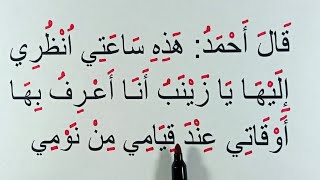 قَالَ أَحْمَدُ: هَذِهِ سَاعَتِي اُنْظُرِي
إِلَيْهَا يَا زَيْنَبُ أَنَا أَعْرِفُ بِهَا
أَوْقَاتِي عِنْدَ قِيَامِي مِنْ نَوْمِي